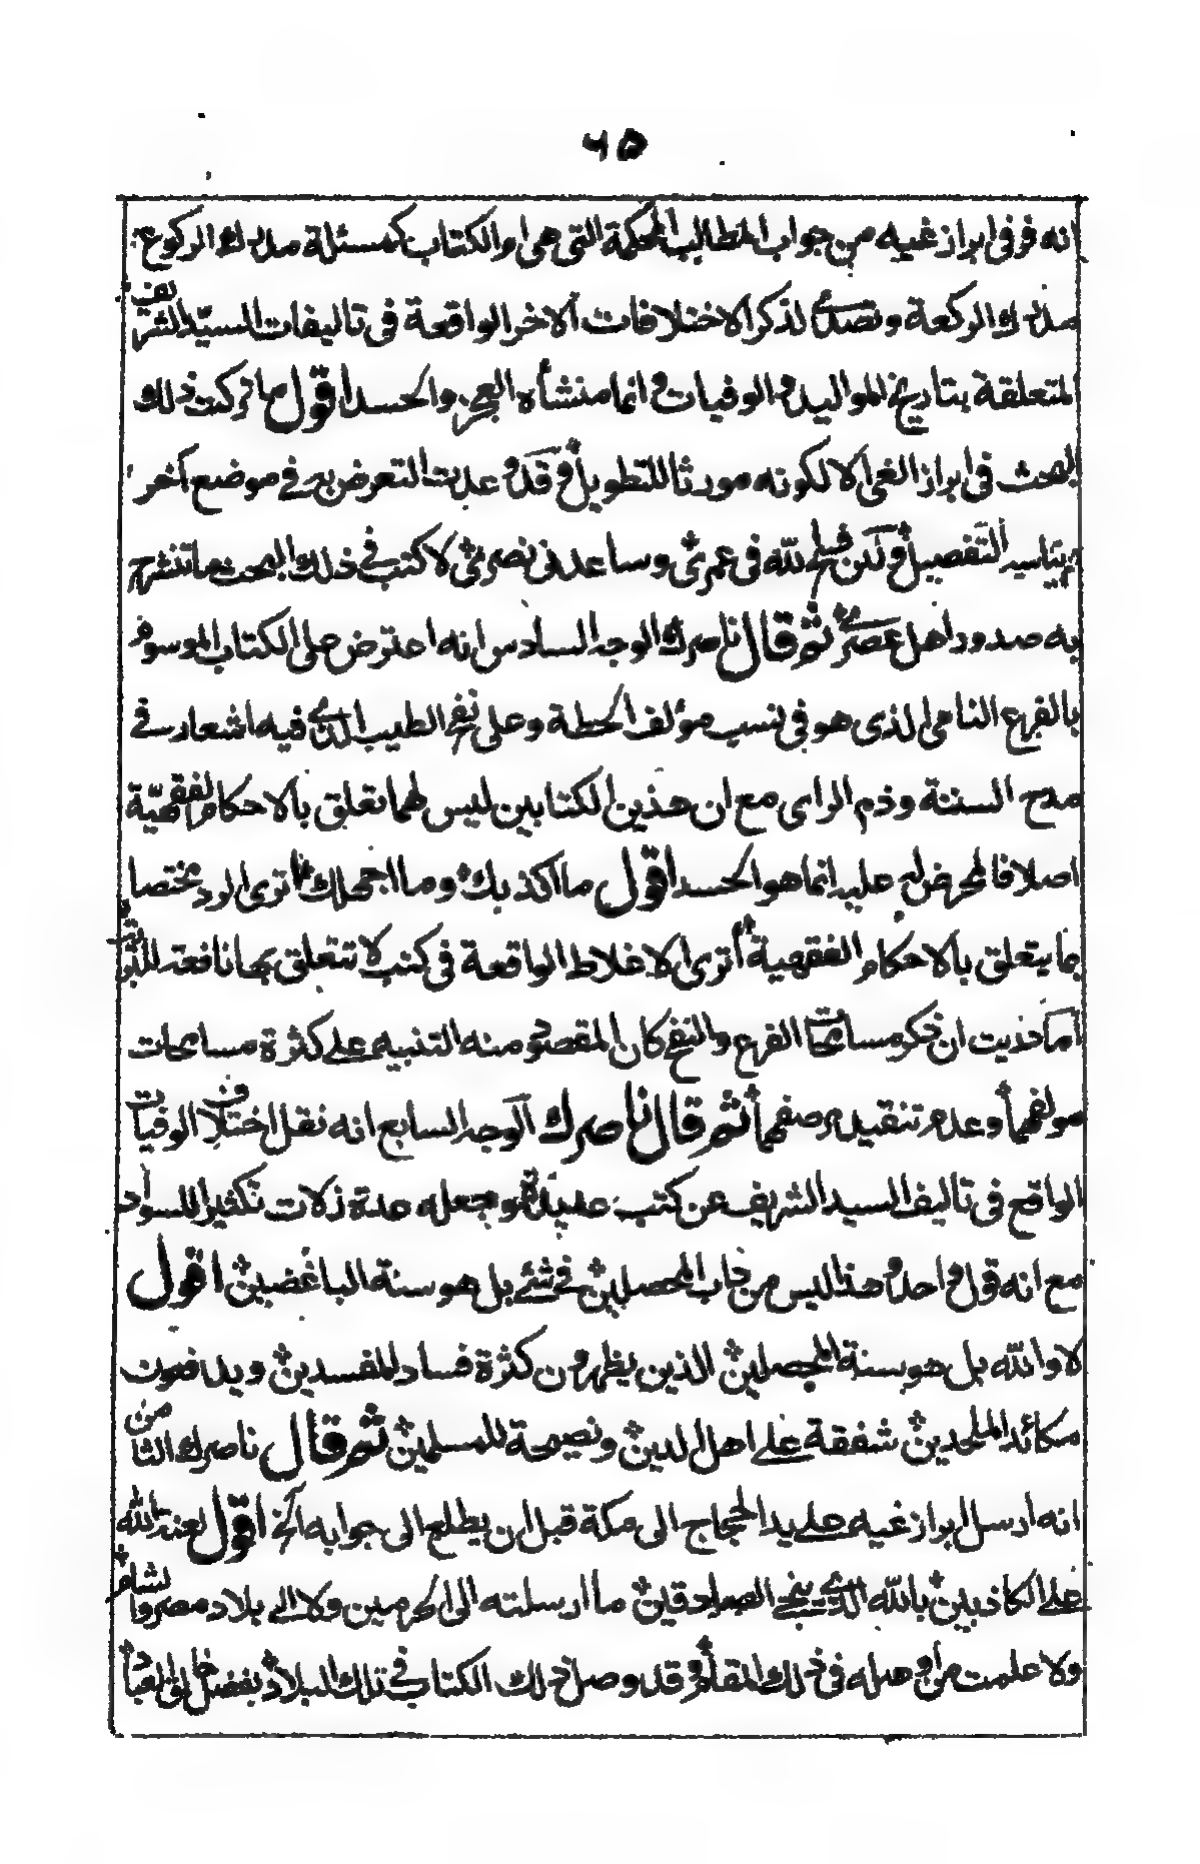 ٦٥
انه فر فى ابراز غيه من جواب المطالب المحكمة التى هى ام الكتاب كمسئلة مدرك الركوع
مدرك الركعة وتصدى لذكر الاختلافات الاخر الواقعة فى تاليفات السيد الشريف
المتعلقة بتاريخ المواليد والوفيات وانما منشأه العجز والحسد اقول ما تركت ذلك
البحث فى ابراز الغى الا لكونه مورثا للتطويل وقد وعدت التعرض به فى موضع آخر
بتاسيد التفصيل ولئن فسح الله فى عمرى وساعدنى نصرتى لاكتب فى ذلك البحث بما تنشرح
به صدور اهل عصرى ثم قال ناصرك الوجه السادس انه اعترض على الكتاب الموسوم
بالفرع النامى الذى هو فى نسب مؤلف الحطة وعلى نفح الطيب الذى فيه اشعار فى
مدح السنة وذم الراى مع ان هذين الكتابين ليس لهما تعلق بالاحكام الفقهية
اصلا فالمحرض له عليه انما هو الحسد اقول ما اكذبك وما اجهلك اترى الرد مختصا
بما يتعلق بالاحكام الفقهية أترى الاغلاط الواقعة فى كتب لا تتعلق بها نافعة
أما دريت ان ذكر مسامحات الفرع والنفح كان المقصود منه التنبيه على كثرة مسامحات
مولفهما وعدم تنقيد مرصفهما ثم قال ناصرك الوجه السابع انه نقل اختلاف الوفيات
الواقع فى تاليف السيد الشريف عن كتب عديدة وجعله عدة زلات تكثيرا للسواد
مع انه قول واحد وهذا ليس من داب المحصلين فى شئ بل هو سنة الباغضين اقول
لا والله بل هو سنة المحصلين الذين يظهرون كثرة فساد المفسدين ويدافعون
مكائد الملحدين شفقة على اهل الدين ونصيحة للمسلمين ثم قال ناصرك الثامن
انه ارسل ابراز غيه على يد الحجاج الى مكة قبل ان يطلع الى جوابه الخ اقول لعنة الله
على الكاذبين بالله الذى ينجى الصادقين ما ارسلته الى الحرمين ولا الى بلاد مصر والشام
ولا علمت من اوصله فى ذلك المقام وقد وصل ذلك الكتاب فى تلك البلاد بفضل خالق العباد